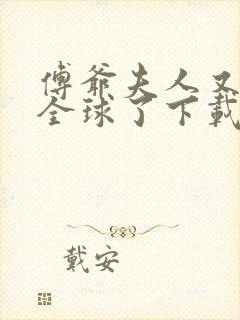 傅爺夫人又
全球了下載
戴安